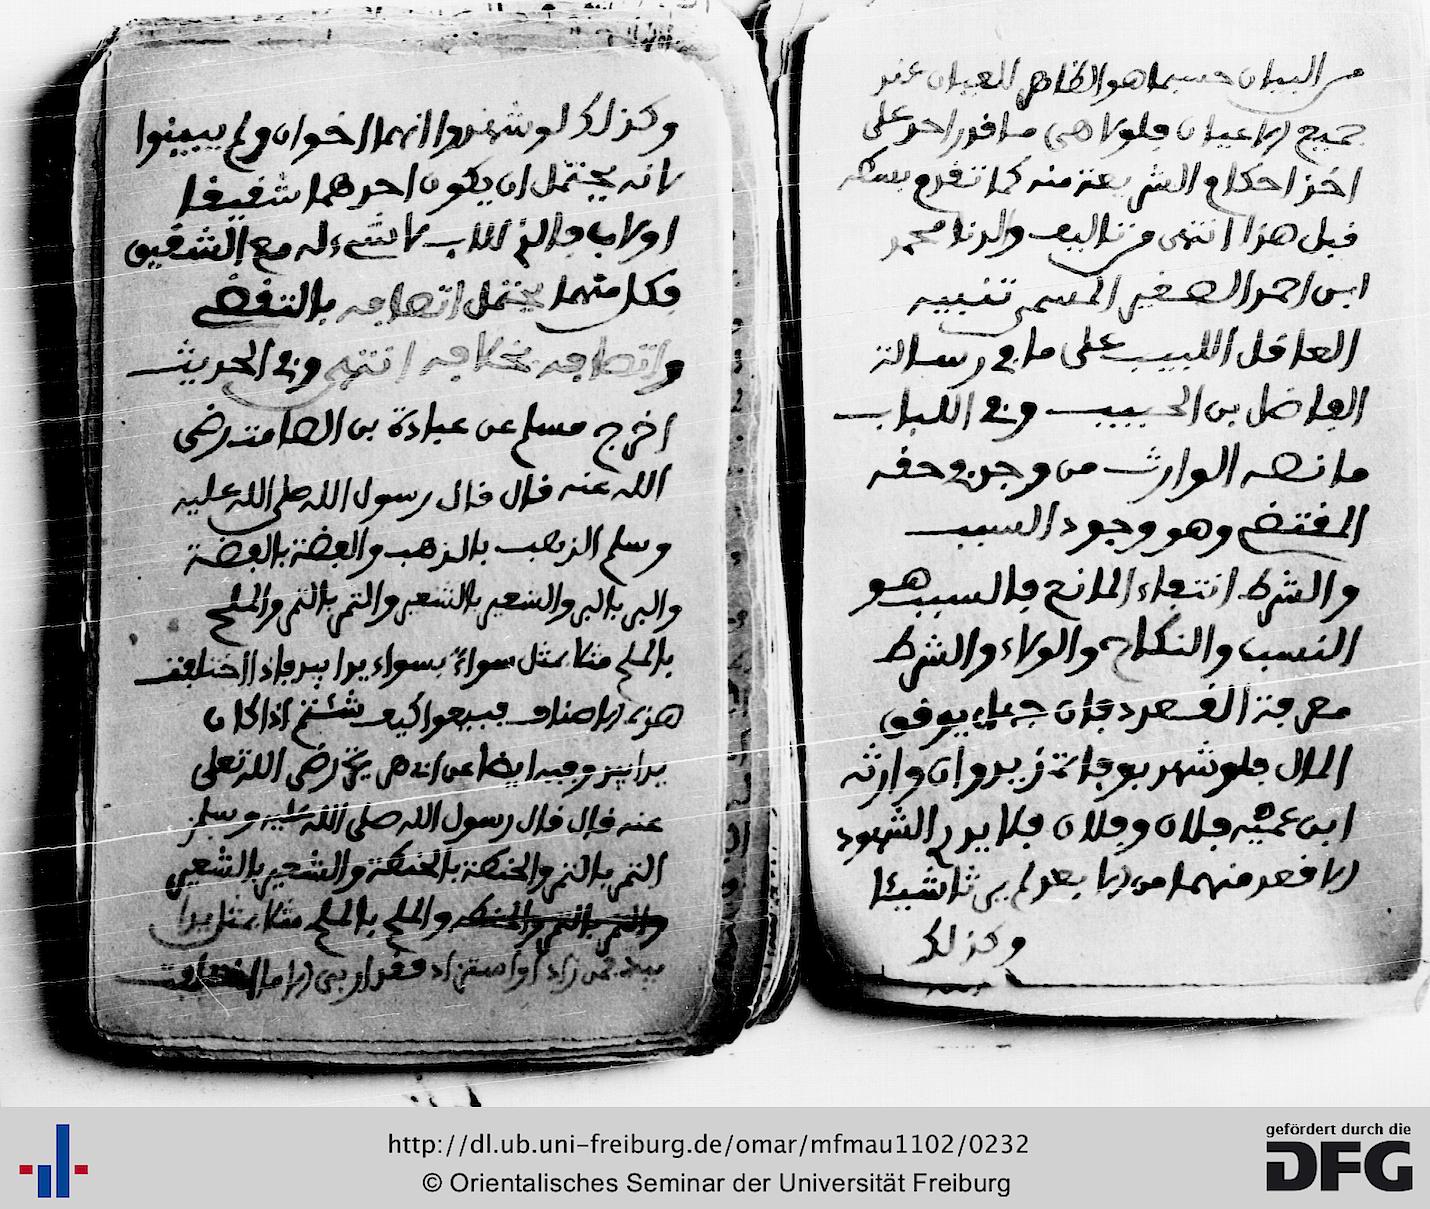 من البيان حسبما هو الظاهر للعيان عند
جميع الاعيان فلولا هي ما قدر احد على
اخذ احكام الشريعة منه كما تقدم بسطه
قبل هذا انتهى من تاليف والدنا محمد
ابن احمد الصغير المسمى تنبيه
العاقل اللبيب على ما في رسالة
الفاضل بن الحبيب وفي اللباب
ما نصه الوارث من وجد في حقه
المقتضى وهو وجود السبب
والشرط انتفاء المانع فالسبب هو
النسب والنكاح والولاء والشرط
معرفة القعدد فان جهل يوقف
المال فلو شهد بوفاة زيد وان وارثه
ابن عميه فلان وفلان فلا يدرى الشهود
الاقعد منهما من الابعد لم يرثا شيئا
وكذلك
وكذلك لو شهدوا انهما اخوان ولم يبينوا
لانه يحتمل ان يكون احدهما شقيقا
او لاب فالذ للاب لا شيء له مع الشقيق
فكل منهما يحتمل اتصافه بالنقض
واتصافه بخلافه انتهى وفي الحديث
اخرج مسلم عن عبادة بن الصامت رضى
الله عنه قال قال رسول الله صلى الله عليه
وسلم الذهب بالذهب والفضة بالفضة
والبر بالبر والشعير بالشعير والتمر بالتمر والملح
بالملح مثلا بمثل سواء بسواء يدا بيد فاذا اختلفت
هذه الاصناف فبيعوا كيف شئتم اذا كان
يدا بيد وفيه ايضا عن ابي هريرة رضى الله تعلى
عنه قال قال رسول الله صلى الله عليه وسلم
التمر بالتمر والحنطة بالحنطة والشعير بالشعير
والتمر بالتمر والحنطة والملح بالملح مثلا بمثل يدا
بيد فمن زاد او استزاد فقد اربى الا ما اختلفت
http://dl.ub.uni-freiburg.de/omar/mfmau1102/0232
© Orientalisches Seminar der Universität Freiburg
gefördert durch die
DFG